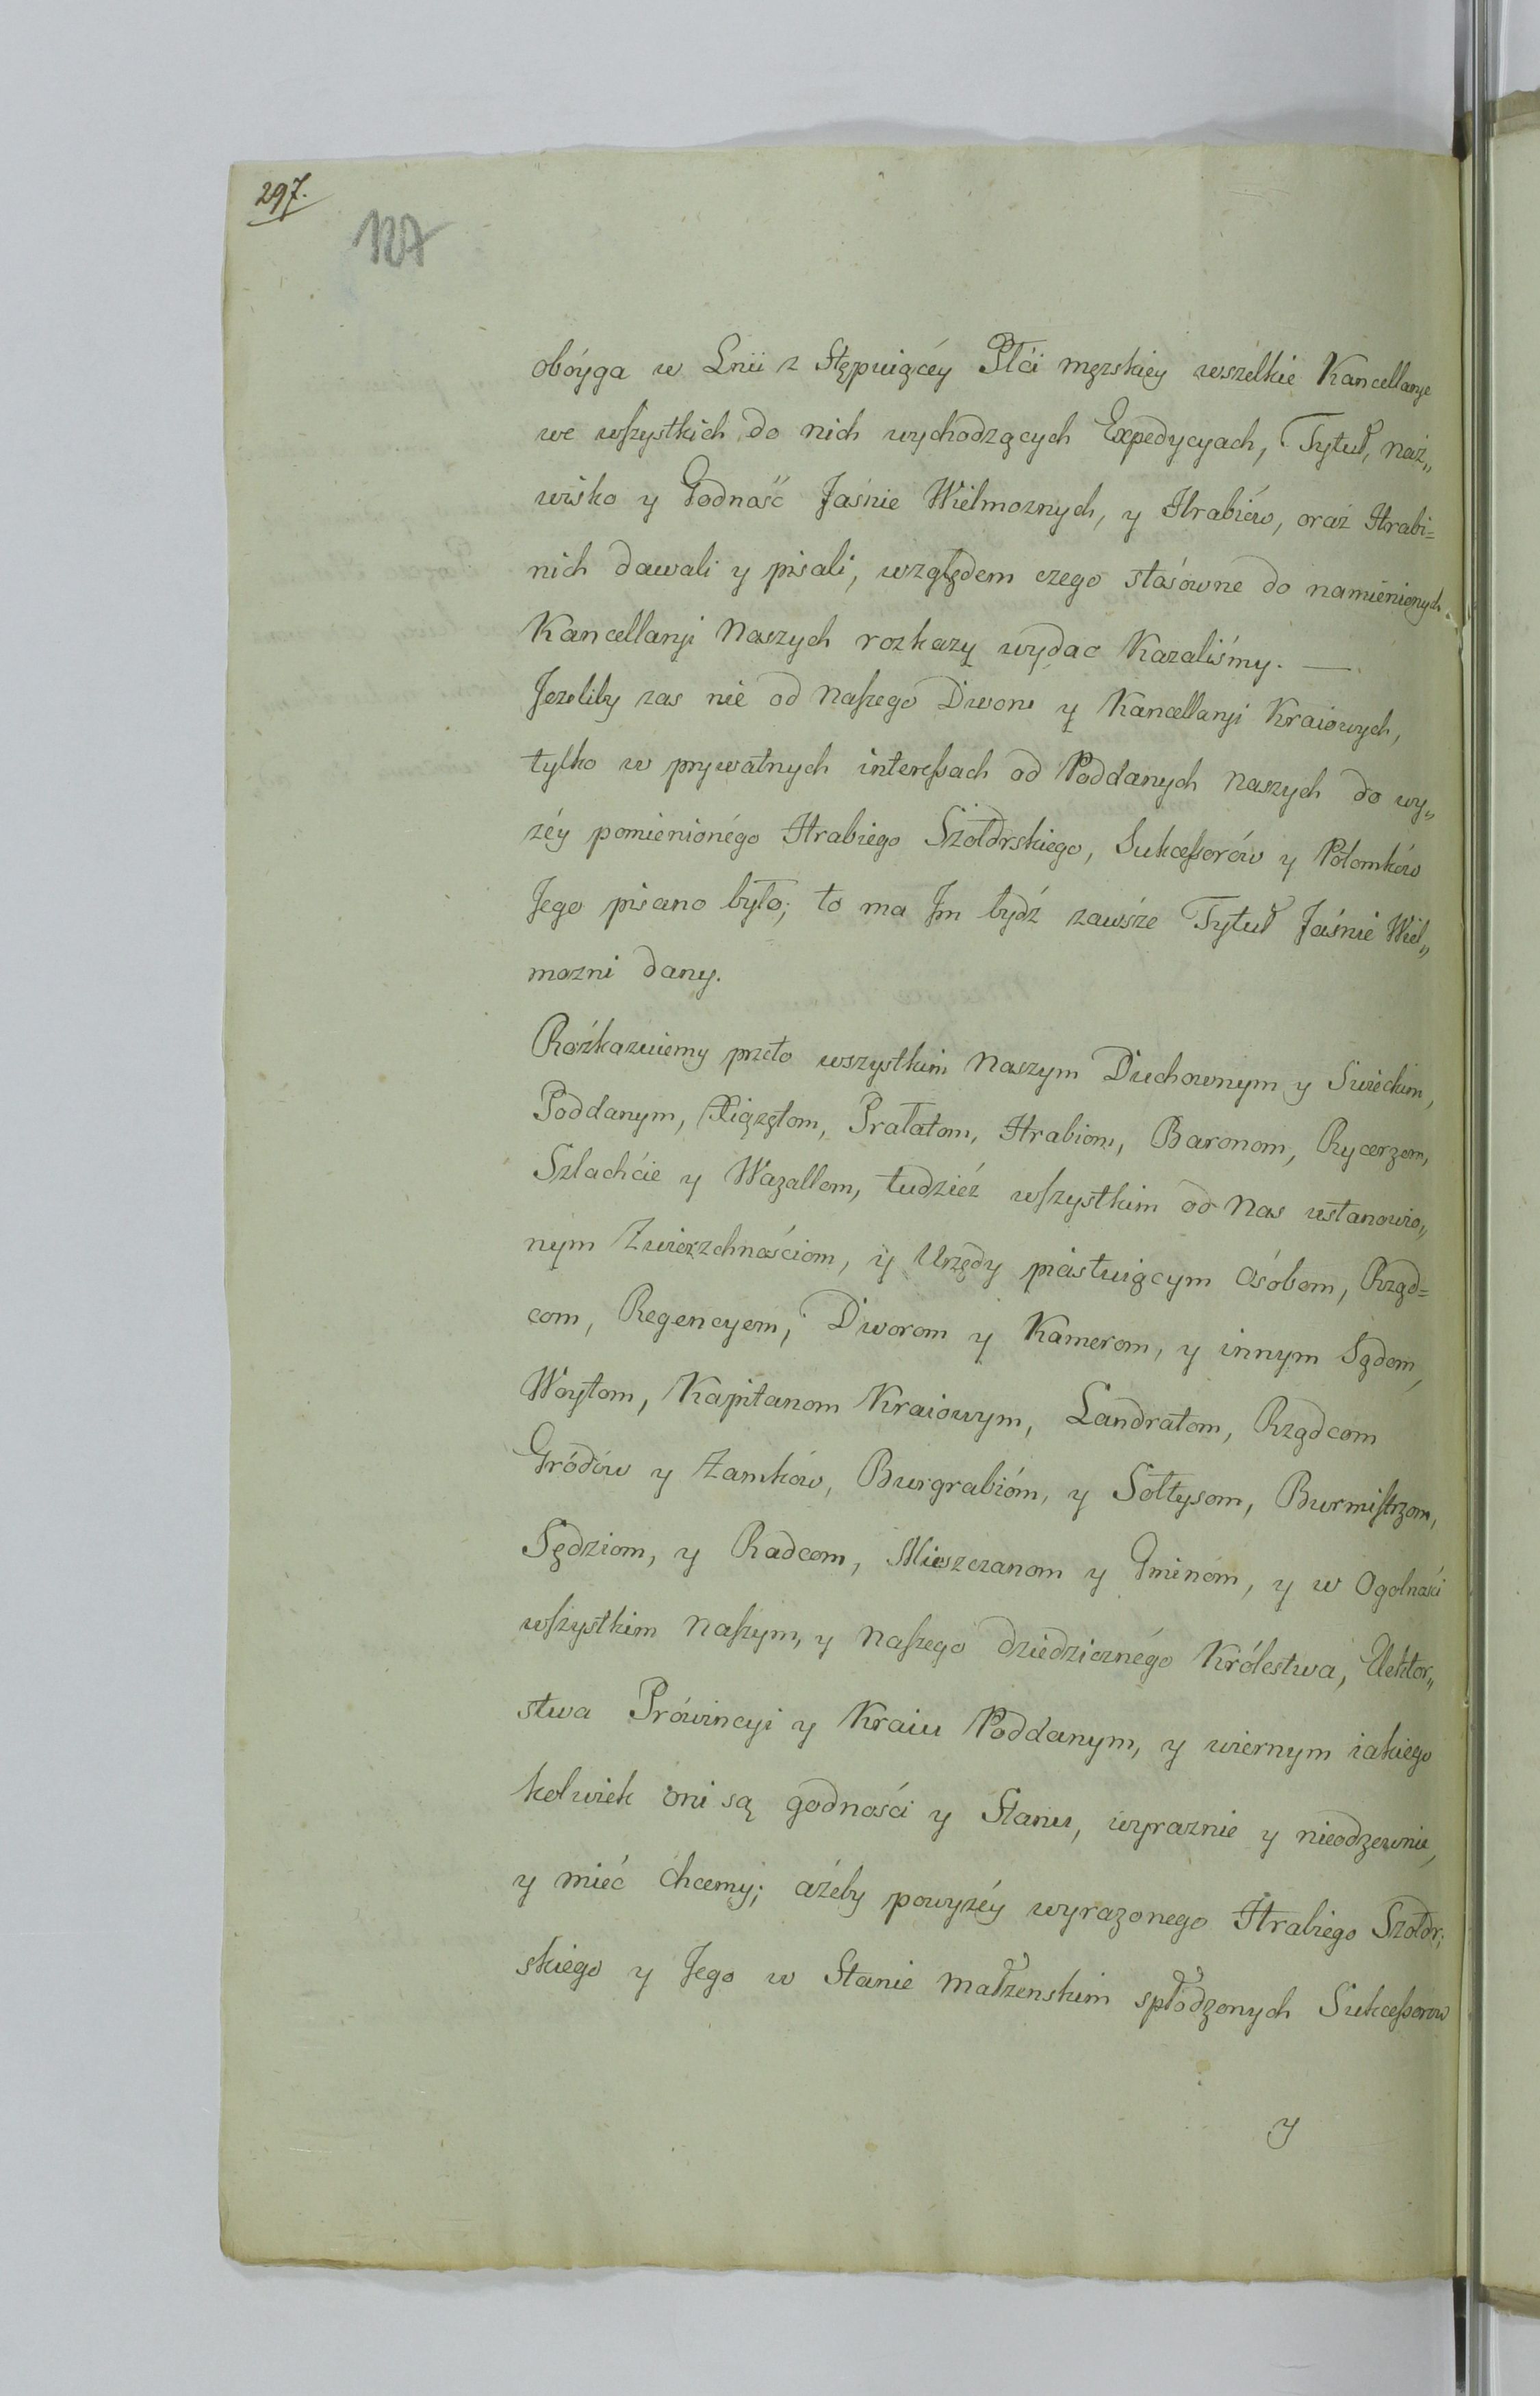 297.
127
obóyga w Lnii z Stępuiącéy Płći męzskiey wszelkie Kancellarye
we wszystkich do nich wychodzących Expedycyach, Tytuł, naz„
wisko y Godność Jaśnie Wielmoznych, y Hrabiów, oraz Hrabi=
nich dawali y pisali, względem czego stósowne do namienionych
Kancellaryi Naszych rozkazy wydac Kazaliśmy. —
Jezeliby zas nie od Naszego Dworu y Kancellaryi Kraiowych,
tylko w prywatnych interessach od Poddanych Naszych do wy„
zéy pomienionégo Hrabiego Szołdrskiego, Sukcessorów y Potomków
Jego pisano było; to ma Jm bydź zawsze Tytuł Jaśnie Wiel„
mozni dany.
Rozkazuiemy przeto wszystkim Naszym Duchownym y Swieckim,
Poddanym, Xiązętom, Prałatom, Hrabiom, Baronom, Rycerzom,
Szlachćie y Wazallom, tudzież wszystkim od Nas ustanowio„
nym Zwierzchnościom, y Urzędy piastuiącym Osóbom, Rząd=
com, Regencyom, Dworom y Kamerom, y innym Sądom,
Woytom, Kapitanom Kraiowym, Landratom, Rządcom
Gródów y Zamków, Burgrabióm, y Sołtysom, Burmistrzom,
Sędziom, y Radcom, Mieszczanom y Gminóm, y w Ogolnosći
wszystkim Naszym, y Naszego dziedzicznégo Królestwa, Elektor„
stwa Prówincyi y Kraiu Poddanym, y wiernym iakiego
kolwiek oni są godnosći y Stanu, wyraznie y nieodzownie,
y mieć chcemy; ażeby powyzéy wyrazonego Hrabiego Szołdr;
skiego y Jego w Stanie małzenskim spłodzonych Sukcessorow
y